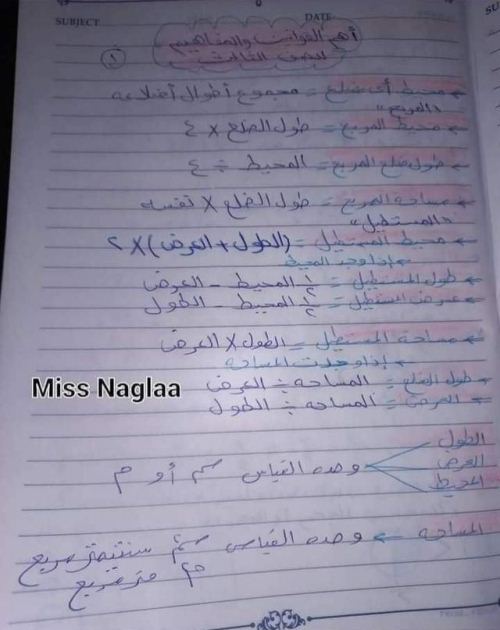 SUBJECT DATE
أهم القوانين والمفاهيم
للصف الثالث
١
محيط أى مضلع = مجموع أطوال أضلاعه
"المربع"
محيط المربع = طول الضلع × ٤
طول ضلع المربع = المحيط ÷ ٤
مساحة المربع = طول الضلع × نفسه
"المستطيل"
محيط المستطيل = (الطول + العرض) × ٢
إذا وجد المحيط
طول المستطيل = ١/٢ المحيط - العرض
عرض المستطيل = ١/٢ المحيط - الطول
مساحة المستطيل = الطول × العرض
إذا وجدت المساحه
طول الضلع = المساحه ÷ العرض
العرض = المساحه ÷ الطول
Miss Naglaa
الطول
العرض
المحيط
وحده القياس سم أو م
المساحه ← وحده القياس سم٢ سنتيمتر مربع
م٢ متر مربع